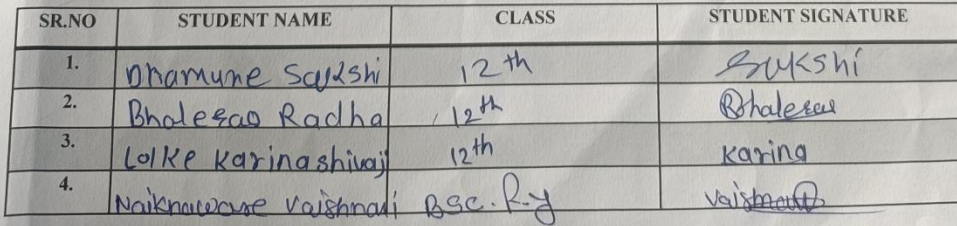 SR.NO STUDENT NAME CLASS STUDENT SIGNATURE
1. Dhamune Sakshi 12th Sakshi
2. Bhalerao Radha 12th Bhalerao
3. Lolke Karina shivaji 12th Karina
4. Naiknaware Vaishnavi BSc. F.y